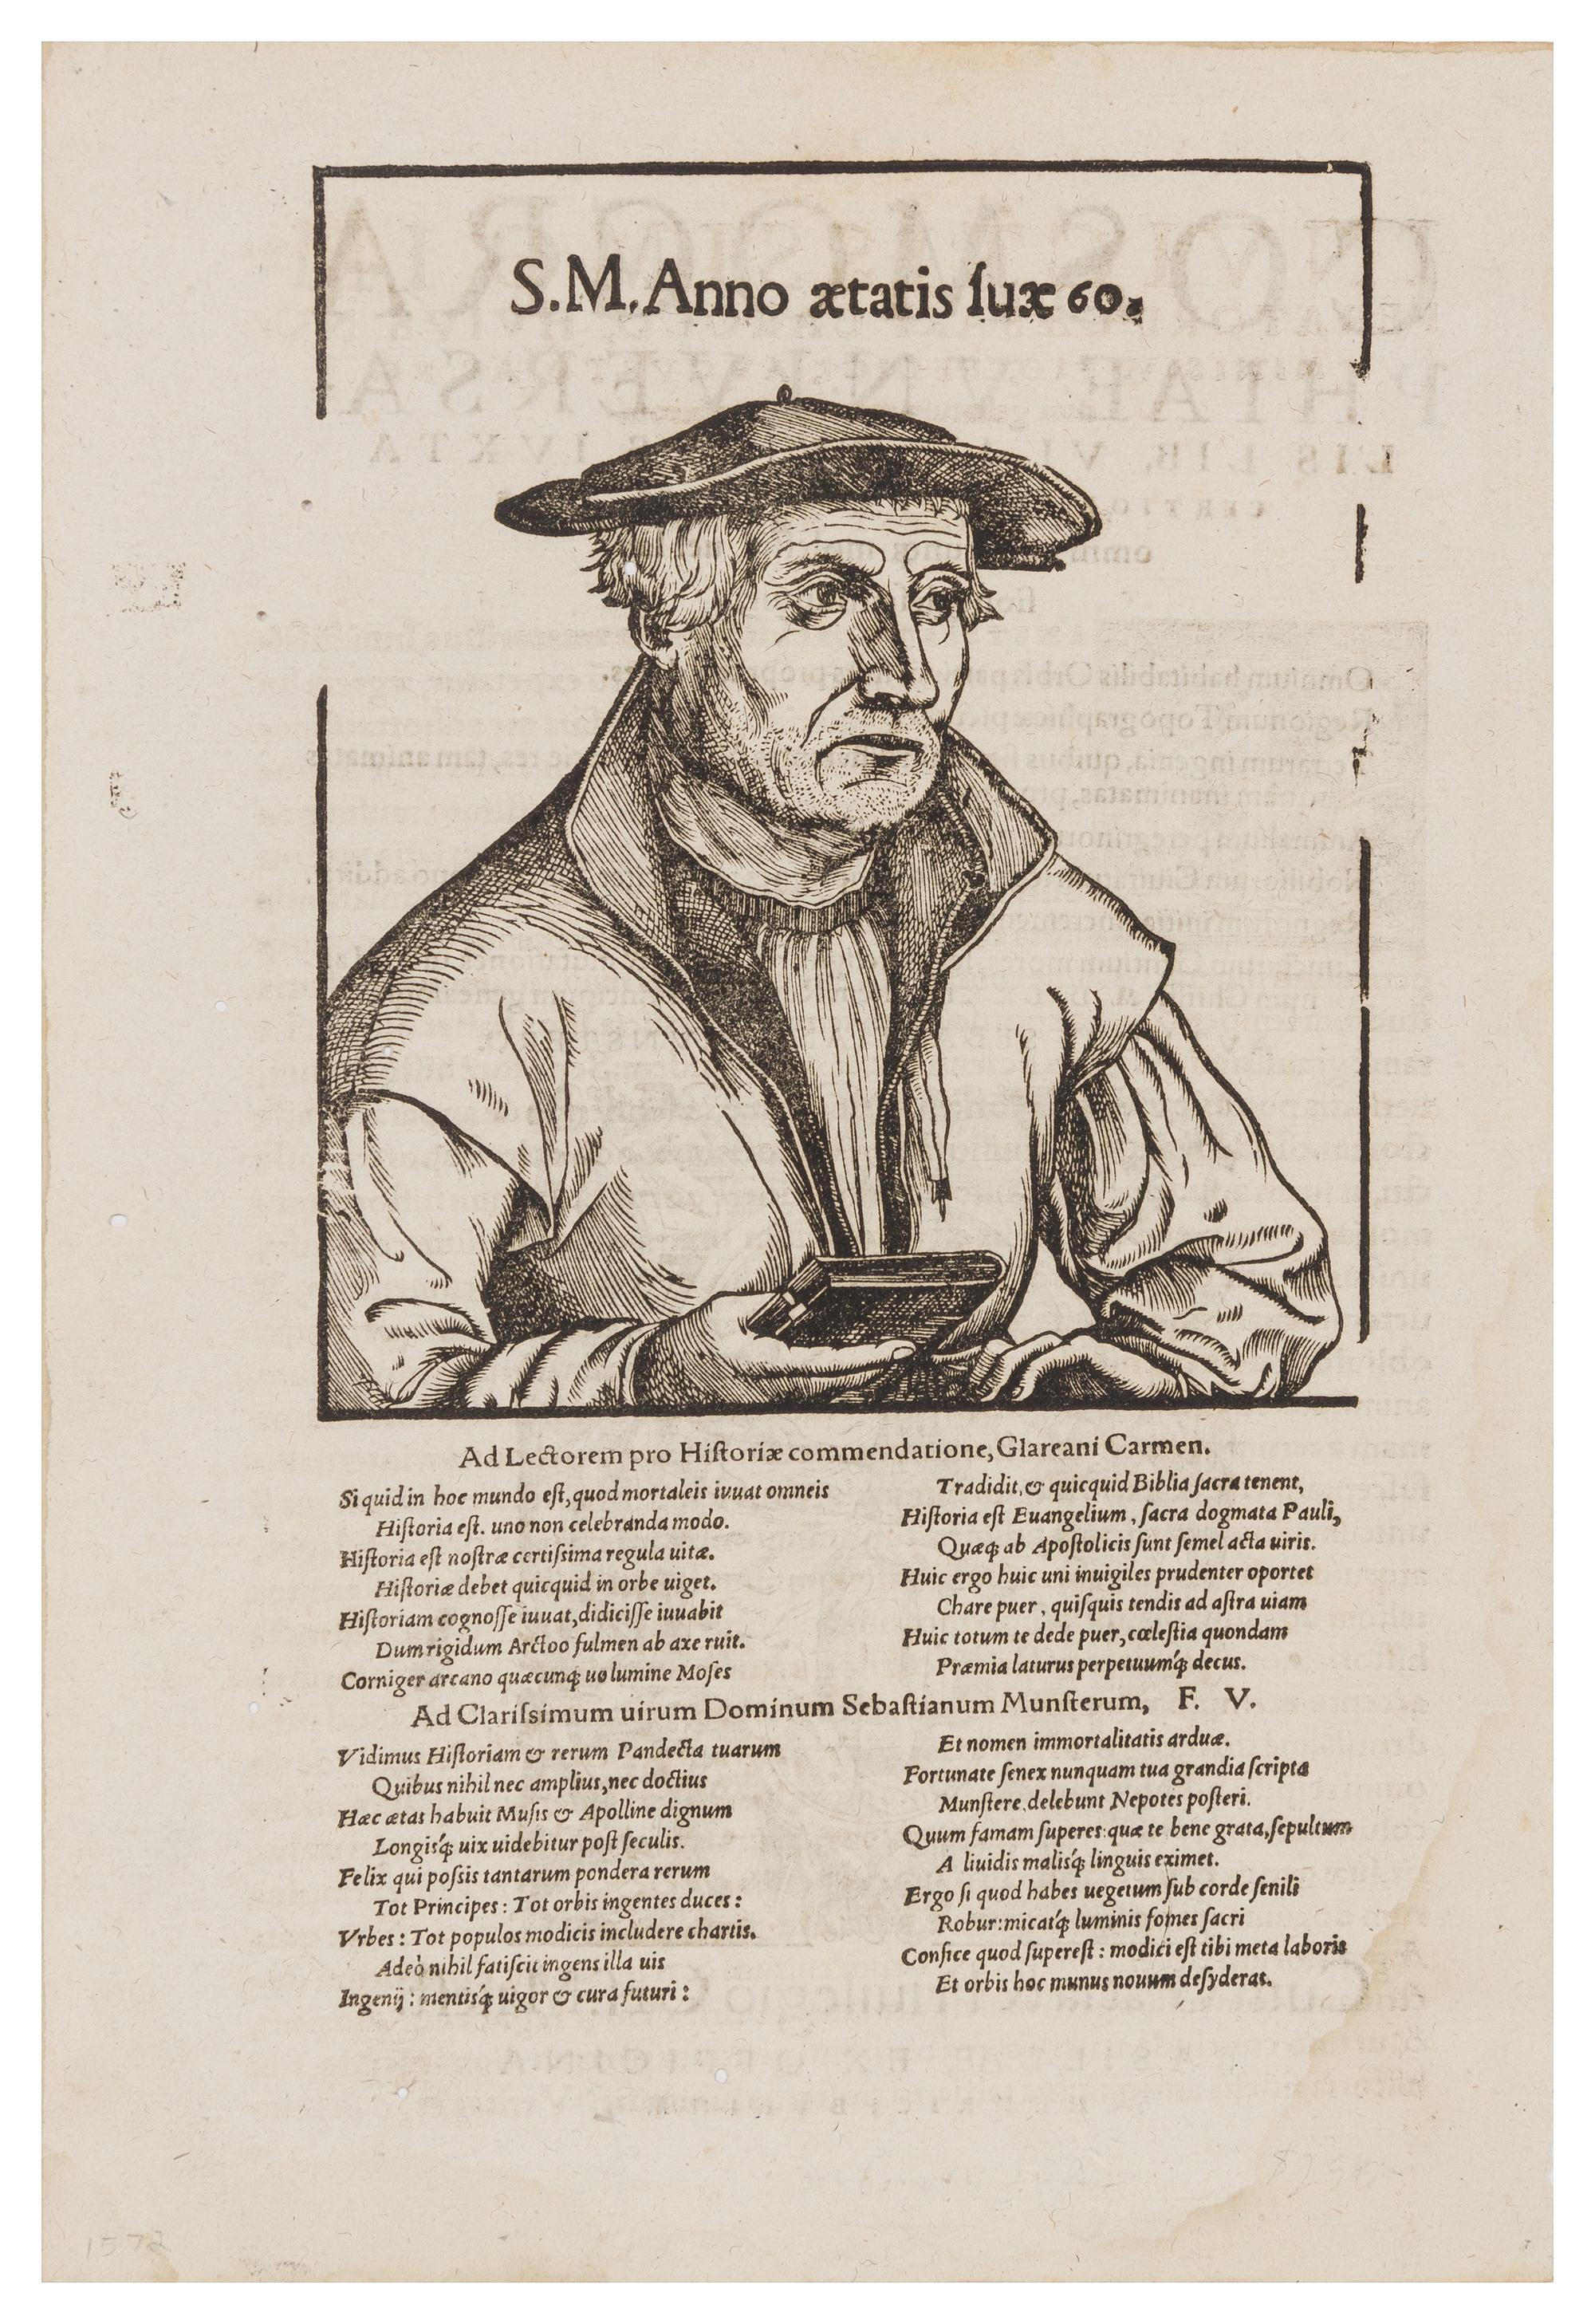 S.M. Anno ætatis ſuæ 60.
Ad Lectorem pro Hiſtoriæ commendatione, Glareani Carmen.
Si quid in hoc mundo eſt, quod mortaleis iuuat omneis
Hiſtoria eſt. uno non celebranda modo.
Hiſtoria eſt noſtræ certiſsima regula uitæ.
Hiſtoriæ debet quicquid in orbe uiget.
Hiſtoriam cognoſſe iuuat, didiciſſe iuuabit
Dum rigidum Arctoo fulmen ab axe ruit.
Corniger arcano quæcunq́; uolumine Moſes
Tradidit, & quicquid Biblia ſacra tenent,
Hiſtoria eſt Euangelium, ſacra dogmata Pauli,
Quæq; ab Apoſtolicis ſunt ſemel acta uiris.
Huic ergo huic uni inuigiles prudenter oportet
Chare puer, quiſquis tendis ad aſtra uiam
Huic totum te dede puer, cœleſtia quondam
Præmia laturus perpetuumq́; decus.
Ad Clariſsimum uirum Dominum Sebaſtianum Munſterum, F. V.
Vidimus Hiſtoriam & rerum Pandecta tuarum
Quibus nihil nec amplius, nec doctius
Hæc ætas habuit Muſis & Apolline dignum
Longisq́; uix uidebitur poſt ſeculis.
Felix qui poſsis tantarum pondera rerum
Tot Principes: Tot orbis ingentes duces:
Vrbes: Tot populos modicis includere chartis.
Adeò nihil fatiſcit ingens illa uis
Ingenij: mentisq́; uigor & cura futuri:
Et nomen immortalitatis arduæ.
Fortunate ſenex nunquam tua grandia ſcripta
Munſtere, delebunt Nepotes poſteri.
Quum famam ſuperes: quæ te bene grata, ſepultum
A liuidis malisq́; linguis eximet.
Ergo ſi quod habes uegetum ſub corde ſenili
Robur: micatq́; luminis fomes ſacri
Confice quod ſupereſt: modici eſt tibi meta laboris
Et orbis hoc munus nouum deſyderat.
1572